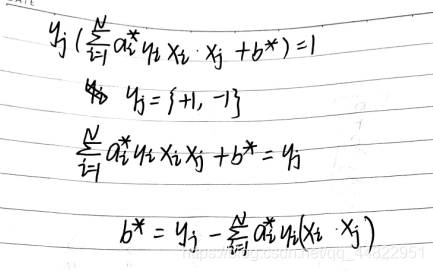 DATE
y_j (∑_{i=1}^{N} a_i^* y_i x_i · x_j + b^*) = 1
y_j = {+1, -1}
∑_{i=1}^{N} a_i^* y_i x_i x_j + b^* = y_j
b^* = y_j - ∑_{i=1}^{N} a_i^* y_i (x_i · x_j)
https://blog.csdn.net/qq_44822951